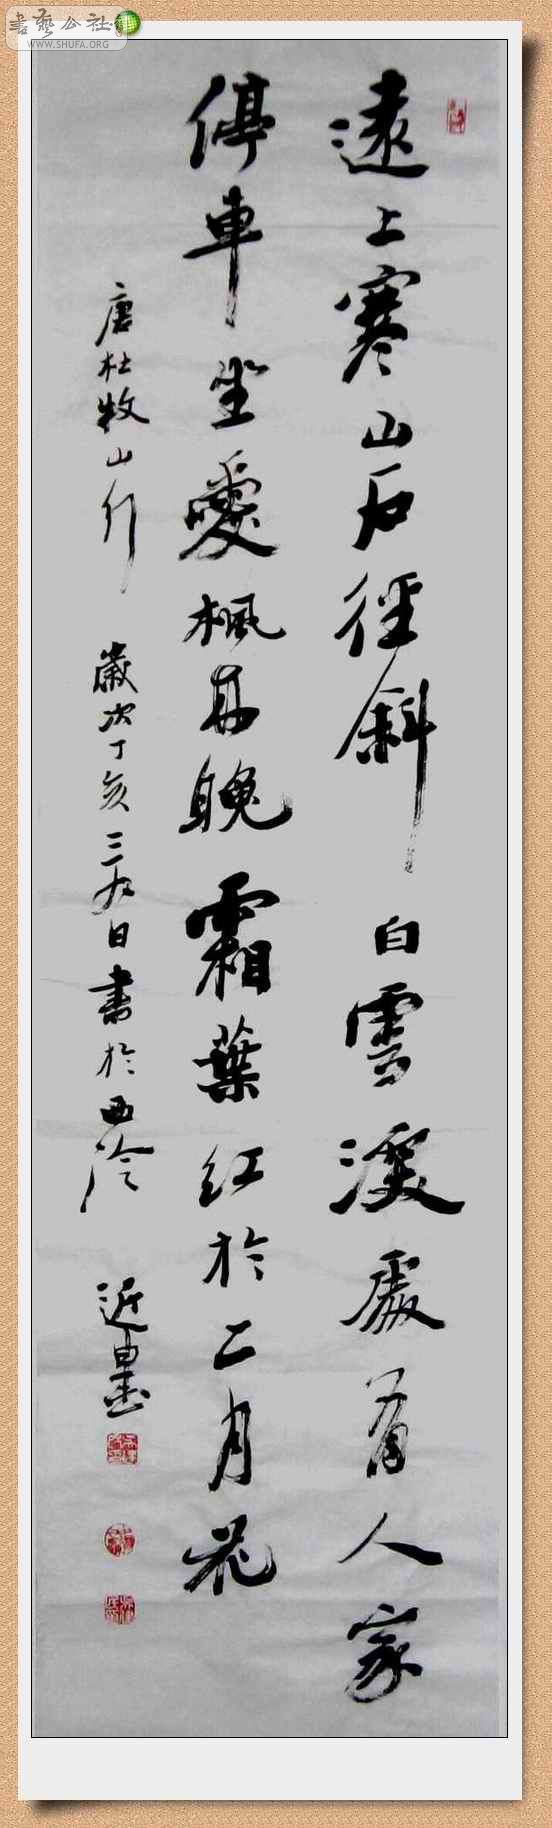 書藝公社
WWW.SHUFA.ORG
遠上寒山石徑斜白雲深處有人家
停車坐愛楓林晚霜葉紅於二月花
唐杜牧山行 歲次丁亥三九日書於西泠 近墨